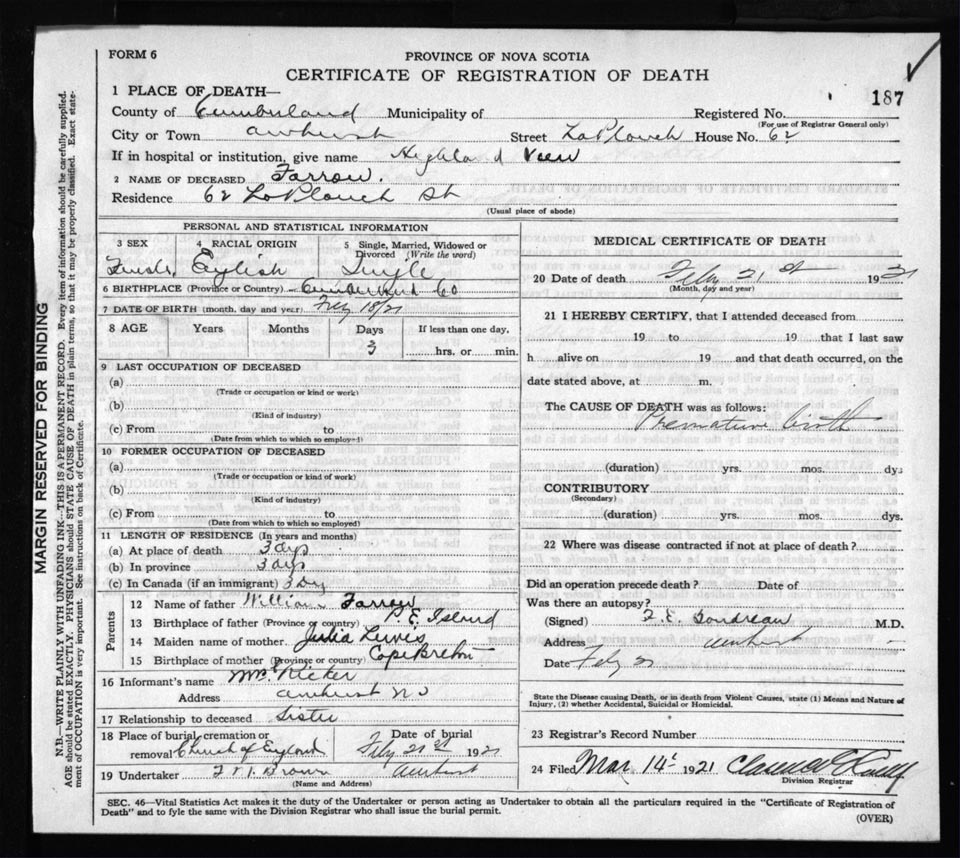 FORM 6
PROVINCE OF NOVA SCOTIA
CERTIFICATE OF REGISTRATION OF DEATH
187
1 PLACE OF DEATH—
County of Cumberland Municipality of Registered No.
(For use of Registrar General only)
City or Town Amherst Street LaPlanch House No. 62
If in hospital or institution, give name Highland View
2 NAME OF DECEASED Farrow.
Residence 62 LaPlanch St
(Usual place of abode)
PERSONAL AND STATISTICAL INFORMATION
3 SEX 4 RACIAL ORIGIN 5 Single, Married, Widowed or Divorced (Write the word)
Female English Single
6 BIRTHPLACE (Province or Country) Cumberland Co
7 DATE OF BIRTH (month, day and year) Feby 18/21
8 AGE Years Months Days If less than one day,
3 hrs. or min.
9 LAST OCCUPATION OF DECEASED
(a)
(Trade or occupation or kind or work)
(b)
(Kind of industry)
(c) From to
(Date from which to which so employed)
10 FORMER OCCUPATION OF DECEASED
(a)
(Trade or occupation or kind of work)
(b)
(Kind of industry)
(c) From to
(Date from which to which so employed)
11 LENGTH OF RESIDENCE (In years and months)
(a) At place of death 3 days
(b) In province 3 days
(c) In Canada (if an immigrant) 3 Day
Parents
12 Name of father William Farrow
13 Birthplace of father (Province or country) P. E. Island
14 Maiden name of mother Julia
15 Birthplace of mother (Province or country) Cape Breton
16 Informant's name Mrs.
Address Amherst NS
17 Relationship to deceased Sister
18 Place of burial, cremation or removal Church of England
Date of burial Feby 21st 1921
19 Undertaker Brown Amherst
(Name and Address)
MEDICAL CERTIFICATE OF DEATH
20 Date of death Feby 21st 1921
(Month, day and year)
21 I HEREBY CERTIFY, that I attended deceased from
19 to 19 that I last saw
h alive on 19 and that death occurred, on the
date stated above, at m.
The CAUSE OF DEATH was as follows:
Premature birth
(duration) yrs. mos. dys
CONTRIBUTORY
(Secondary)
(duration) yrs. mos. dys.
22 Where was disease contracted if not at place of death?
Did an operation precede death? Date of
Was there an autopsy?
(Signed) M.D.
Address Amherst
Date Feby 21
State the Disease causing Death, or in death from Violent Causes, state (1) Means and Nature of
Injury, (2) whether Accidental, Suicidal or Homicidal.
23 Registrar's Record Number
24 Filed Mar 14 1921
Division Registrar
SEC. 46—Vital Statistics Act makes it the duty of the Undertaker or person acting as Undertaker to obtain all the particulars required in the "Certificate of Registration of
Death" and to fyle the same with the Division Registrar who shall issue the burial permit.
(OVER)
MARGIN RESERVED FOR BINDING
N.B.—WRITE PLAINLY WITH UNFADING INK—THIS IS A PERMANENT RECORD. Every item of information should be carefully supplied.
AGE should be stated EXACTLY. PHYSICIANS should STATE CAUSE OF DEATH in plain terms, so that it may be properly classified. Exact state-
ment of OCCUPATION is very important. See instructions on back of Certificate.